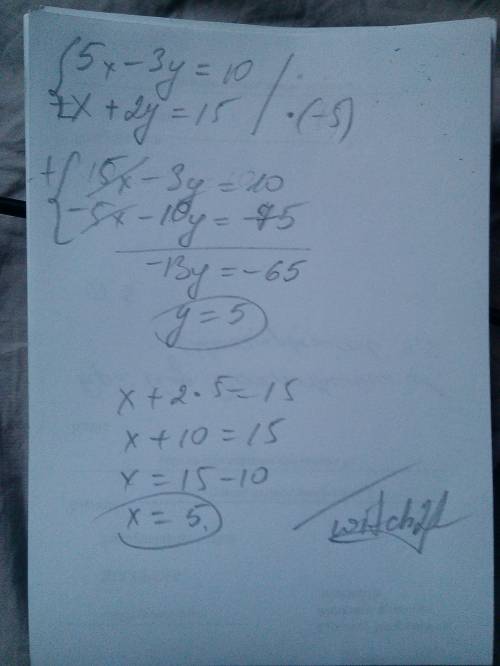 5x - 3y = 10
x + 2y = 15 / · (-5)
+ 5x - 3y = 10
-5x - 10y = -75
-13y = -65
y = 5
x + 2 · 5 = 15
x + 10 = 15
x = 15 - 10
x = 5